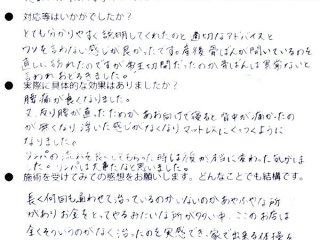 ● 対応等はいかがでしたか？
とても分かりやすく説明してくれたのと適切なアドバイスと
ウソを言わない感じが良かったです。産後骨ばんが開いているのを
直しに訪れたのですが帝王切開だったのか骨ばんは異常ないと
言われおどろきました。
● 実際に具体的な効果はありましたか？
腰痛が良くなりました。
又、反り腰が直ったためかあお向けで寝ると背中が痛かったの
が無くなり浮いた感じがなくなりマットレスにくっつくように
なりました。
リンパの流れをよくしてもらった時は体が本当に変わった気がしま
した。リンパは大事だなと思いました。
● 施術を受けてみての感想をお願いします。どんなことでも結構です。
長く何回も通わせて治っているのかいないのかあやふやな所
がありお金をとってやるみたいな所が多い中、ここのお店は
全くそういうのがなく治ったのを実感でき、家で出来る体操も